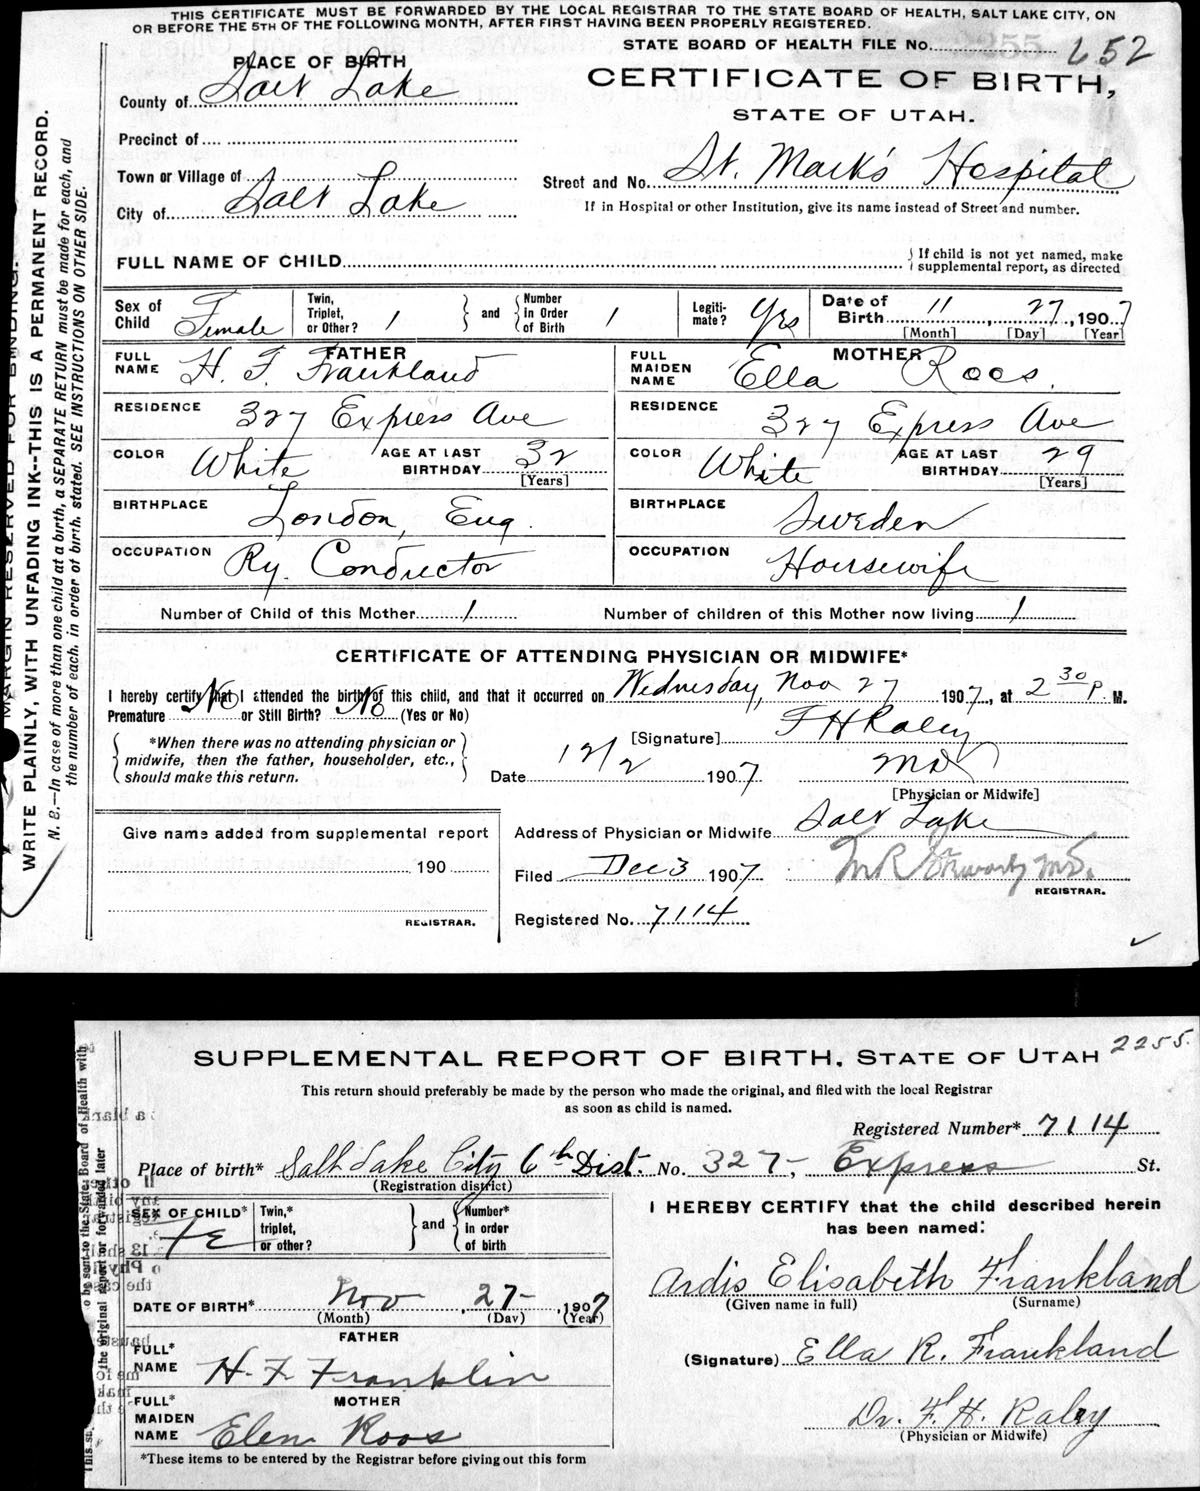 THIS CERTIFICATE MUST BE FORWARDED BY THE LOCAL REGISTRAR TO THE STATE BOARD OF HEALTH, SALT LAKE CITY, ON
OR BEFORE THE 5TH OF THE FOLLOWING MONTH, AFTER FIRST HAVING BEEN PROPERLY REGISTERED.
STATE BOARD OF HEALTH FILE No. 652
PLACE OF BIRTH
CERTIFICATE OF BIRTH,
County of Salt Lake
STATE OF UTAH.
Precinct of
Town or Village of
Street and No. St. Mark's Hospital
City of Salt Lake
If in Hospital or other Institution, give its name instead of Street and number.
FULL NAME OF CHILD
If child is not yet named, make
supplemental report, as directed
Sex of Child Female
Twin, Triplet, or Other? 1
and
Number in Order of Birth 1
Legiti-mate? Yes
Date of Birth 11, 27, 1907
[Month] [Day] [Year]
FATHER
FULL NAME H. F. Frankland
MOTHER
FULL MAIDEN NAME Ella Roos.
RESIDENCE 327 Express Ave
RESIDENCE 327 Express Ave
COLOR White AGE AT LAST BIRTHDAY 32 [Years]
COLOR White AGE AT LAST BIRTHDAY 29 [Years]
BIRTHPLACE London, Eng.
BIRTHPLACE Sweden
OCCUPATION Ry. Conductor
OCCUPATION Housewife
Number of Child of this Mother 1 Number of children of this Mother now living 1
CERTIFICATE OF ATTENDING PHYSICIAN OR MIDWIFE*
I hereby certify that I attended the birth of this child, and that it occurred on Wednesday, Nov 27 1907, at 2 30 P. M.
Premature No or Still Birth? No (Yes or No)
*When there was no attending physician or
midwife, then the father, householder, etc.,
should make this return.
[Signature] F H Raley
Date 12/2 1907 MD
[Physician or Midwife]
Give name added from supplemental report
190
REGISTRAR.
Address of Physician or Midwife Salt Lake
Filed Dec 3 1907
REGISTRAR.
Registered No. 7114
MARGIN RESERVED FOR BINDING.
WRITE PLAINLY, WITH UNFADING INK--THIS IS A PERMANENT RECORD.
N. B.--In case of more than one child at a birth, a SEPARATE RETURN must be made for each, and
the number of each, in order of birth, stated. SEE INSTRUCTIONS ON OTHER SIDE.
SUPPLEMENTAL REPORT OF BIRTH, STATE OF UTAH 2255.
This return should preferably be made by the person who made the original, and filed with the local Registrar
as soon as child is named.
Registered Number* 7114
Place of birth* Salt Lake City 6th Dist. No. 327-, Express St.
(Registration district)
SEX OF CHILD* Fe
Twin,* triplet, or other?
and
Number* in order of birth
I HEREBY CERTIFY that the child described herein
has been named:
Ardis Elisabeth Frankland
(Given name in full) (Surname)
DATE OF BIRTH* Nov, 27-, 1907
(Month) (Day) (Year)
FATHER
FULL* NAME H. F. Franklin
(Signature) Ella R. Frankland
MOTHER
FULL* MAIDEN NAME Elen Roos
Dr. F. H. Raley
(Physician or Midwife)
*These items to be entered by the Registrar before giving out this form